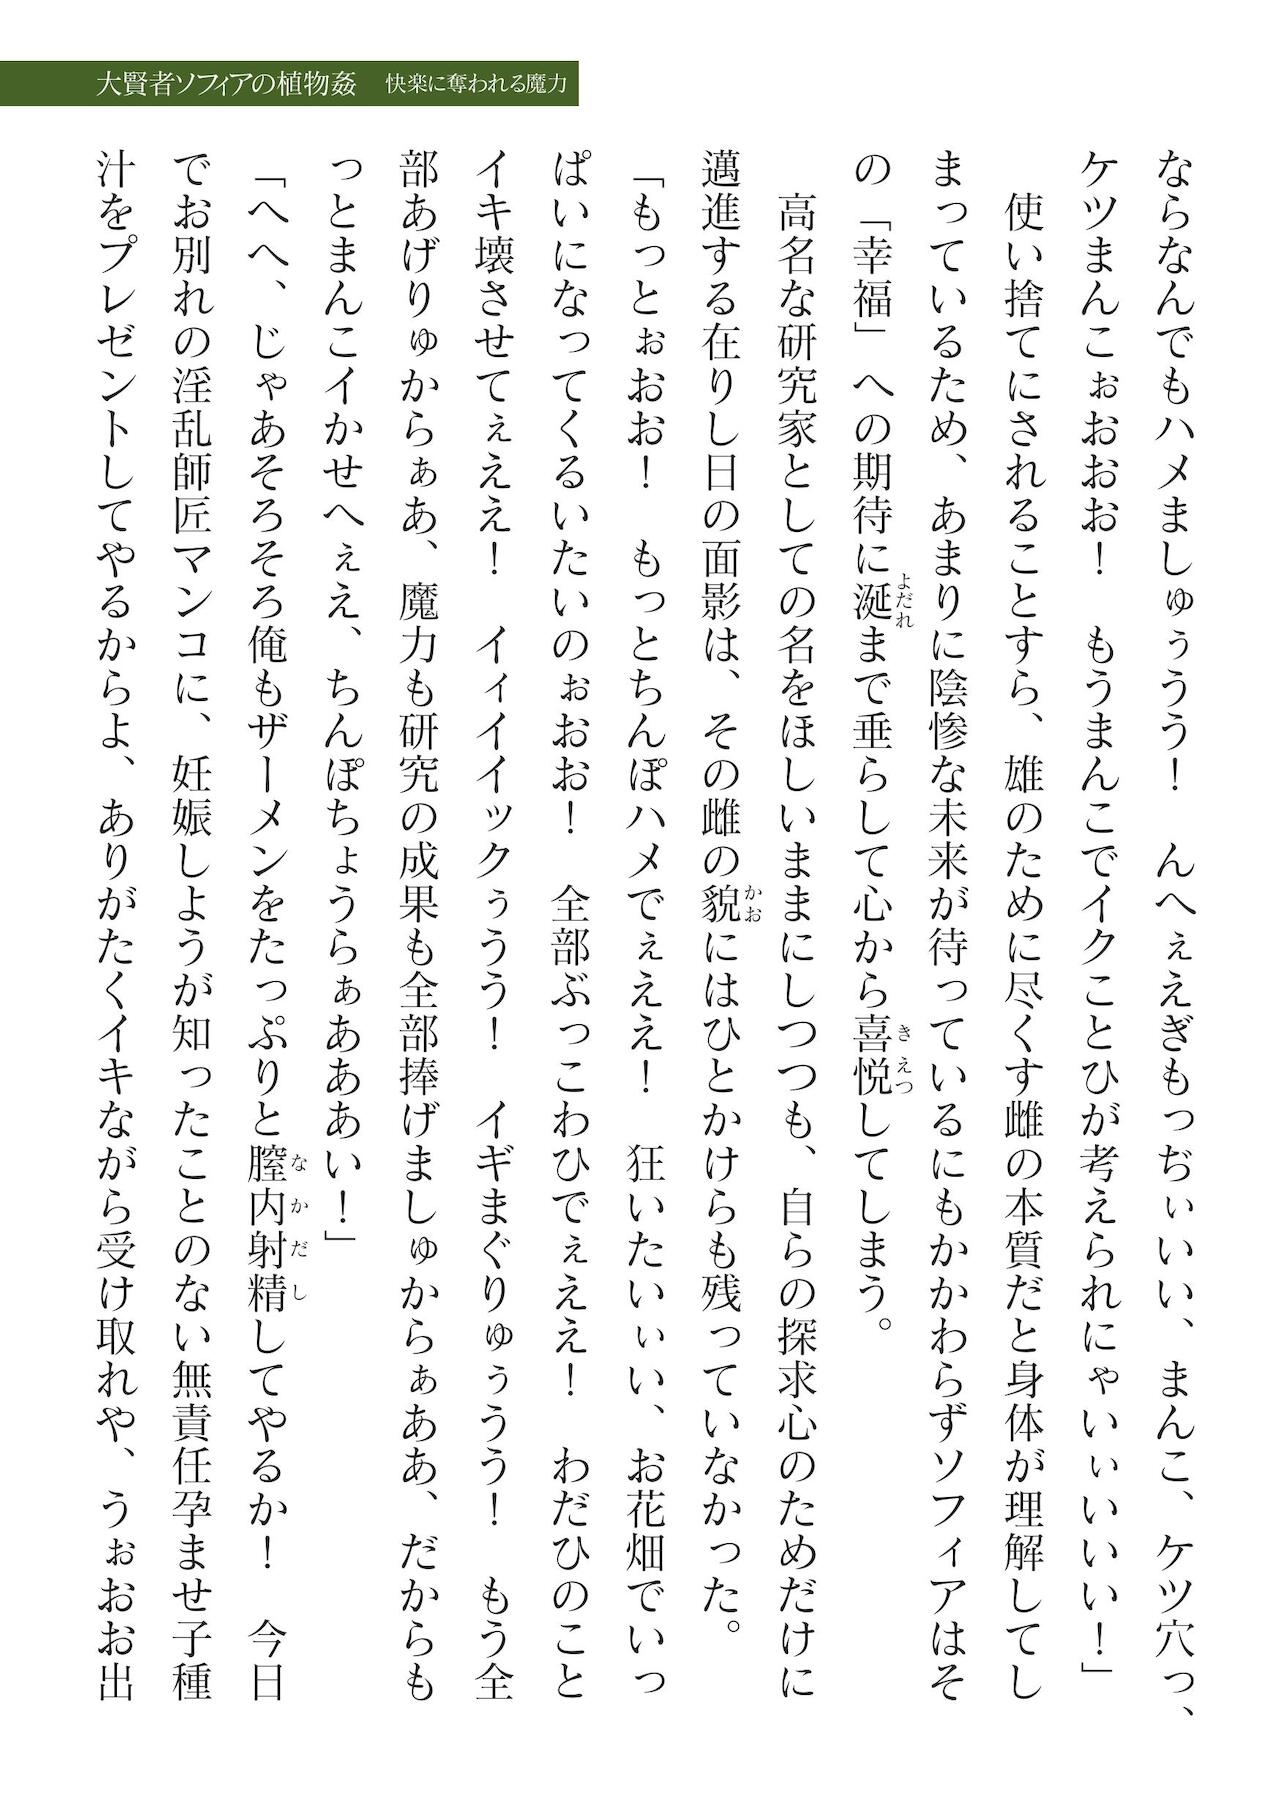 大賢者ソフィアの植物姦　快楽に奪われる魔力
ならなんでもハメましゅぅうう！　んへぇえぎもっぢぃいい、まんこ、ケツ穴っ、
ケツまんこぉおおお！　もうまんこでイクことひが考えられにゃいぃいいい！」
　使い捨てにされることすら、雄のために尽くす雌の本質だと身体が理解してし
まっているため、あまりに陰惨な未来が待っているにもかかわらずソフィアはそ
の「幸福」への期待に涎まで垂らして心から喜悦してしまう。
　高名な研究家としての名をほしいままにしつつも、自らの探求心のためだけに
邁進する在りし日の面影は、その雌の貌にはひとかけらも残っていなかった。
「もっとぉおお！　もっとちんぽハメでぇええ！　狂いたいぃい、お花畑でいっ
ぱいになってくるいたいのぉおお！　全部ぶっこわひでぇええ！　わだひのこと
イキ壊させてぇええ！　イィイイックぅうう！　イギまぐりゅぅうう！　もう全
部あげりゅからぁあ、魔力も研究の成果も全部捧げましゅからぁああ、だからも
っとまんこイかせへぇえ、ちんぽちょうらぁあああい！」
「へへ、じゃあそろそろ俺もザーメンをたっぷりと膣内射精してやるか！　今日
でお別れの淫乱師匠マンコに、妊娠しようが知ったことのない無責任孕ませ子種
汁をプレゼントしてやるからよ、ありがたくイキながら受け取れや、うぉおお出
よだれ
きえつ
かお
なかだし